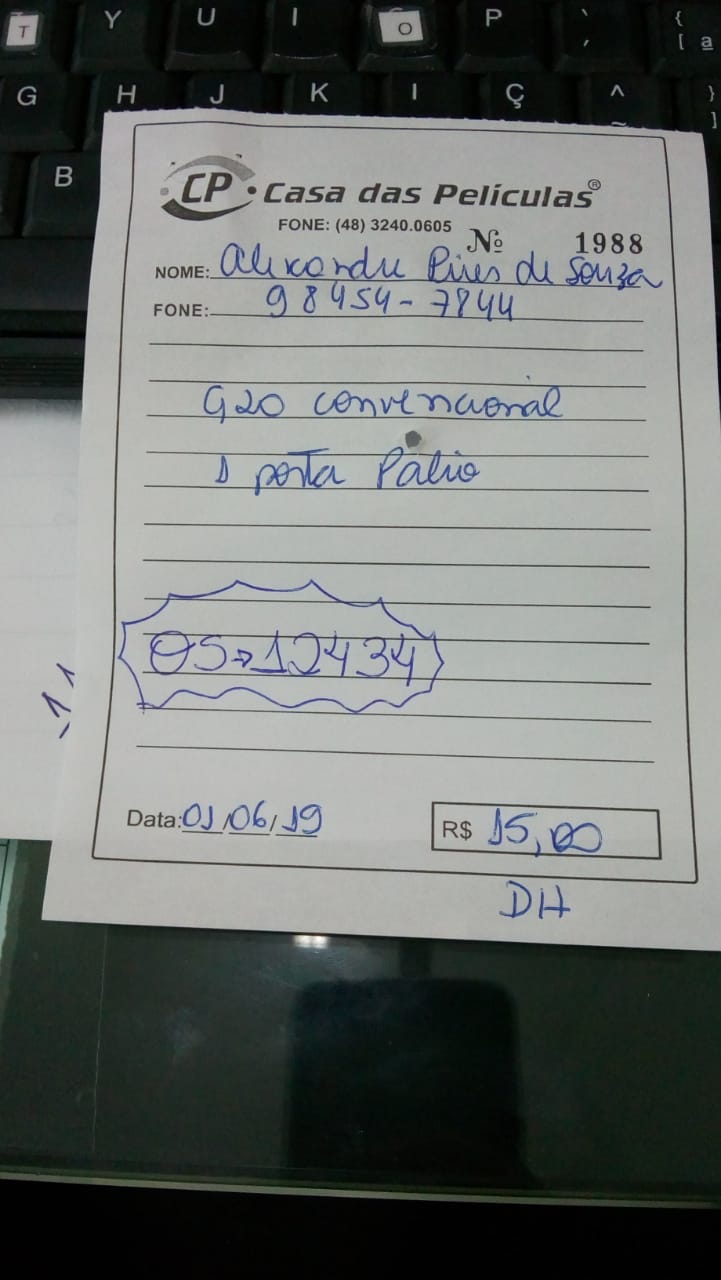 T Y U I O P ` ´ { [ ª
G H J K I Ç ^ ~ } ]
B
CP • Casa das Películas®
FONE: (48) 3240.0605
Nº 1988
NOME: Alexandre Pires de Souza
FONE: 98454-7844
G20 convencional
1 porta Palio
OS→12434
Data: 01/06/19
R$ 15,00
DH